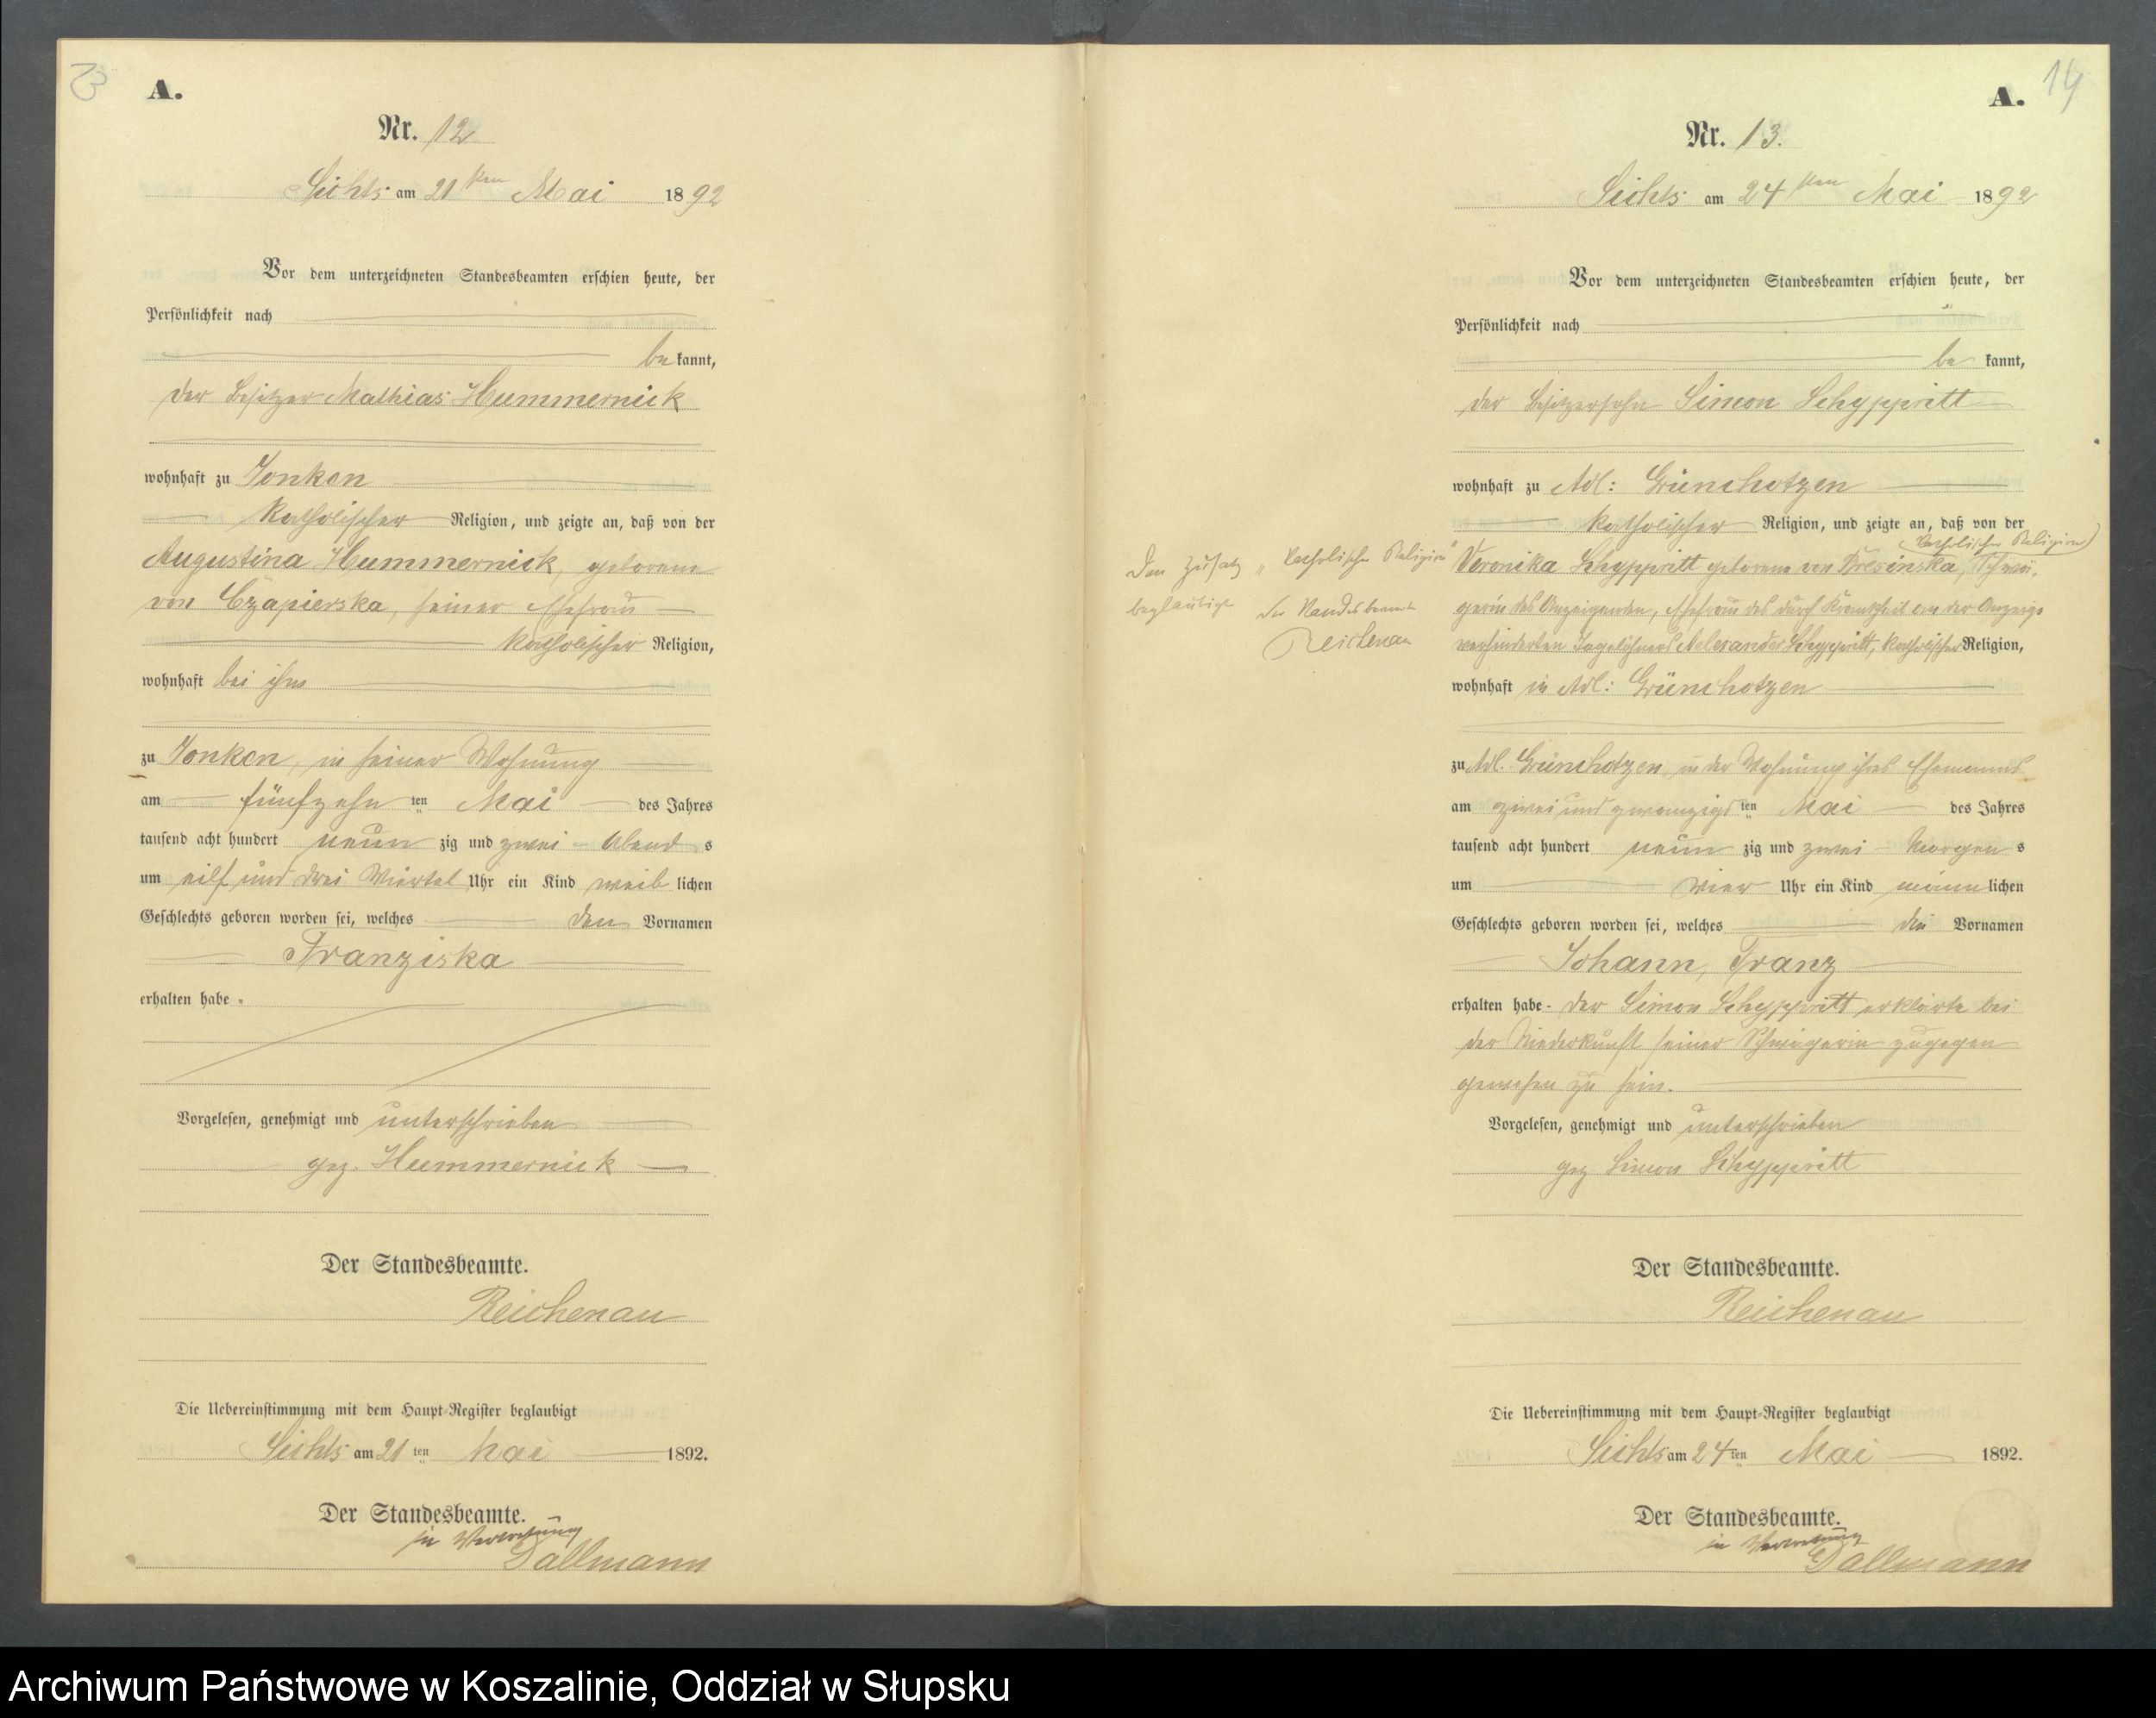 13
A.
Nr. 12
Sichts am 21ten Mai 1892
Vor dem unterzeichneten Standesbeamten erschien heute, der
Persönlichkeit nach
bekannt,
der Besitzer Mathias Hummernick
wohnhaft zu Jonken
katholischer Religion, und zeigte an, daß von der
Augustina Hummernick, geborene
von Czapierska, seiner Ehefrau
katholischer Religion,
wohnhaft bei ihm
zu Jonken, in seiner Wohnung
am fünfzehnten Mai des Jahres
tausend acht hundert neunzig und zwei Abends
um eilf und drei Viertel Uhr ein Kind weiblichen
Geschlechts geboren worden sei, welches den Vornamen
Franziska
erhalten habe.
Vorgelesen, genehmigt und unterschrieben
gez. Hummernick
Der Standesbeamte.
Reichenau
Die Uebereinstimmung mit dem Haupt-Register beglaubigt
Sichts am 21ten Mai 1892.
Der Standesbeamte.
in Vertretung
Dallmann
14
A.
Nr. 13.
Sichts am 24ten Mai 1892
Vor dem unterzeichneten Standesbeamten erschien heute, der
Persönlichkeit nach
bekannt,
der Besitzersohn Simon Schyppritt
wohnhaft zu Adl: Grünchotzen
katholischer Religion, und zeigte an, daß von der
(katholischer Religion)
Veronika Schyppritt geborene von Bresinska, Schwä-
gerin des Anzeigenden, Ehefrau des durch Krankheit an der Anzeige
verhinderten Tagelöhners Alexander Schyppritt, katholischer Religion,
wohnhaft in Adl: Grünchotzen
zu Adl. Grünchotzen in der Wohnung ihres Ehemannes
am zwei und zwanzigsten Mai des Jahres
tausend acht hundert neunzig und zwei Morgens
um vier Uhr ein Kind männlichen
Geschlechts geboren worden sei, welches die Vornamen
Johann, Franz
erhalten habe. Der Simon Schyppritt erklärte bei
der Niederkunft seiner Schwägerin zugegen
gewesen zu sein.
Vorgelesen, genehmigt und unterschrieben
gez Simon Schyppritt
Der Standesbeamte.
Reichenau
Die Uebereinstimmung mit dem Haupt-Register beglaubigt
Sichts am 24ten Mai 1892.
Der Standesbeamte.
in Vertretung
Dallmann
Den Zusatz "katholischer Religion"
beglaubigt Der Standesbeamte
Reichenau
Archiwum Państwowe w Koszalinie, Oddział w Słupsku